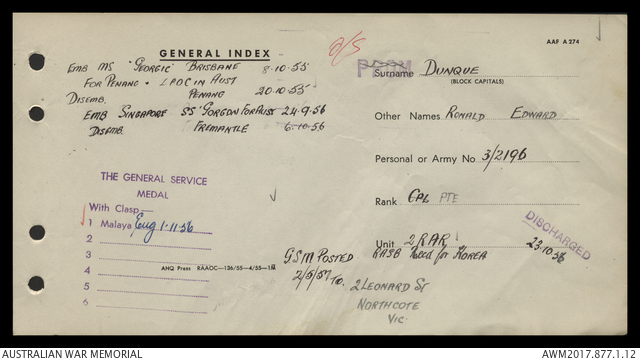 AAF A 274
GENERAL INDEX
2/5
EMB MS "GEORGIC" BRISBANE 8-10-55
FOR PENANG + LPOC IN AUST
DISEMB. PENANG 20-10-55
EMB SINGAPORE SS "GORGON FOR AUST 24-9-56
DISEMB. FREMANTLE 6-10-56
Surname DUNQUE
(BLOCK CAPITALS)
Other Names RONALD EDWARD
Personal or Army No. 3/2196
Rank CPL PTE
Unit 2 RAR
RASB for KOREA
DISCHARGED
23-10-56
THE GENERAL SERVICE
MEDAL
With Clasp—
1 Malaya Eng 1-11-56
2
3
4
5
6
AHQ Press RAAOC—136/55—4/55—1M
GSM POSTED
2/5/57 TO.
2 LEONARD ST
NORTHCOTE
VIC.
AUSTRALIAN WAR MEMORIAL
AWM2017.877.1.12